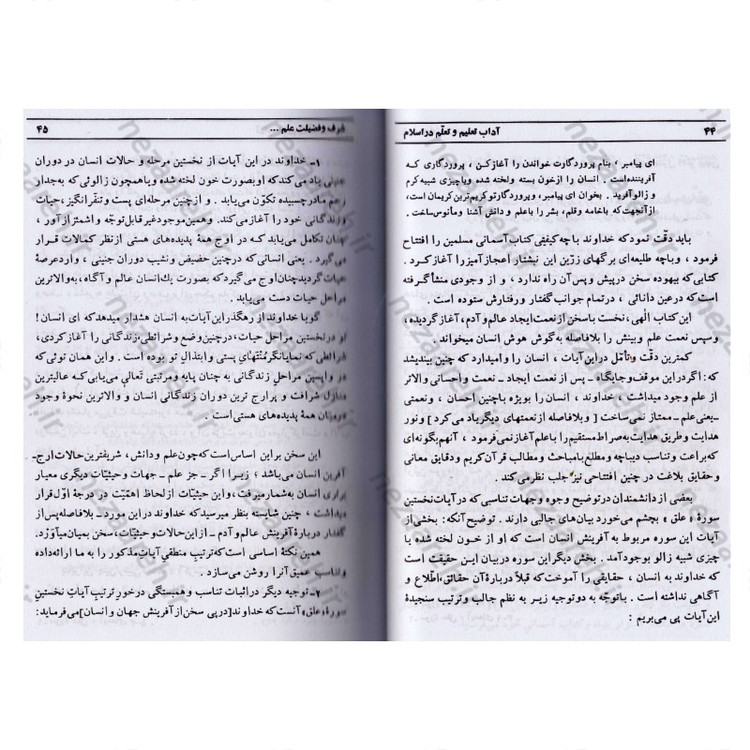 ۴۴
آداب تعلیم و تعلّم در اسلام
ای پیامبر ، بنام پروردگارت خواندن را آغازکن ، پروردگاری که
آفریننده است . انسان را ازخون بسته ولخته شده وپاچیزی شبیه کرم
و زالوآفرید . بخوان ای پیامبر، وپروردگارتوکریم‌ترین کریمان است ،
ازآنجهت‌که باخامه وقلم، بشر را باعلم و دانش آشنا ومأنوس‌ساخت .
باید دقّت نمودکه خداوند باچه کیفیّتی کتاب آسمانی مسلمین را افتتاح
فرمود ، وباچه طلیعه‌ای برگهای زرّین این نبشتار اعجازآمیز را آغازکرد .
کتابی‌که بیهوده سخن درپیش وپس آن راه ندارد ، و از وجودی منشأگرفته
است‌که درعین دانائی ، درتمام جوانب گفتار ورفتارش ستوده است .
این کتاب الٰهی، نخست باسخن ازنعمت‌ایجاد عالم وآدم ، آغازگردیده،
سپس نعمت علم وبینش را بلافاصله به‌گوش هوش انسان میخواند .
کمترین دقّت وتأمّل دراین‌آیات ، انسان را وامیدارد که چنین بیندیشد
که : اگردراین موقف‌وجایگاه ـ پس ازنعمت ایجاد ـ نعمت واحسانی والاتر
از علم وجود میداشت ، خداوند ، انسان را بویژه باچنین احسان ، ونعمتی
ـ یعنی‌علم ـ ممتاز نمی‌ساخت [ وبلافاصله ازنعمتهای دیگریاد می‌کرد ] ونور
هدایت وطریق هدایت به‌صراط مستقیم را باعلم‌آغاز نمی‌فرمود ، آنهم‌بگونه‌ای
که‌براعت وتناسب دیباچه ومطلع بامباحث ومطالب قرآن‌کریم ودقایق معانی
وحقایق بلاغت در چنین افتتاحی نیز جلب نظرمی‌کند .
بعضی از دانشمندان درتوضیح وجوه وجهات تناسبی که درآیات‌نخستین
سورهٔ « علق » بچشم می‌خورد بیان‌های جالبی دارند . توضیح آنکه : بخشی‌از
آیات این سوره مربوط به آفرینش انسان است که او از خـون لخته شده یا
چیزی شبیه زالو بوجودآمد . بخش دیگراین سوره دربیان ایـن حقیقت است
که خداوند به انسان ، حقایقی را آموخت‌که قبلاً دربارهٔ آن حقائق،اطّلاع و
آگاهی نداشته است . باتوجّه به دوتوجیه زیـر به نظم جالب وترتیب سنجیدهٔ
این آیات پی می‌بریم :
شرف وفضیلت علم ...
۴۵
۱ـ خداوند در این آیات از نخستین مرحله و حالات انسان در دوران
جنینی یاد می‌کند که اوبصورت خون لخته شده ویاهمچون زالوئی که به‌جدار
رحم مادرچسبیده تکوّن می‌یابد . و ازچنین مرحله‌ای پست وتنفّرانگیز،حیات
وزندگانی خود را آغازمی‌کند. وهمین‌موجودغیرقابل توجّه و اشمئزازآور ،
چنان‌تکامل می‌یابدکـه در اوج همهٔ پدیده‌های هستی ازنظر کمالات قـرار
می‌گیرد . یعنی انسانی که درچنین حضیض ونشیب دوران جنینی ، واردعرصهٔ
حیات‌گردیدچنان‌اوج‌می‌گیردکه بصورت یك‌انسان عالم و آگاه، به‌والاترین
مراحل حیات دست می‌یابد .
گویا خداوند از رهگذر این‌آیات‌به‌انسان هشدار میدهدکه ای انسان !
تو درنخستین مراحل حیات، درچنین‌وضع وشرائطی،زندگانی را آغازکردی،
شرائطی که نمایانگرمُنتهای پستی وابتذال تو بوده است . و این همان توئی که
در واپسین مراحل زندگانی به چنان پایه ومرتبتی تعالی می‌یابی‌که عالیترین
منازل شرافت و پرارج ترین دوران زندگانی انسان و والاترین نحوهٔ وجود
درمیان همهٔ پدیده‌های هستی است .
این سخن براین اساس‌است‌که‌چون‌علم‌ودانش، شریفترین‌حالات ارج‌ـ
آفرین انسان می‌باشد ؛ زیـرا اگر ـ جز علم ـ جهات وحیثیّات دیگری معیار
برتری انسان به‌شمارمیرفت، واین حیثیّات ازلحاظ اهمّیّت در درجهٔ اوّل‌قرار
میداشت ، چنین شایسته بنظر میرسیدکه خداوند دراین مورد ـ بلافاصله‌پس‌از
گفتار دربارهٔ‌آفرینش عالم وآدم ـ از این‌حالات‌وحیثیّات، سخن بمیان‌میآورد.
همین نکتهٔ اساسی است‌که‌ترتیب منطقی‌آیات‌مذکور را به ما ارائه‌داده
وتناسب عمیق‌آنرا روشن می‌سازد .
۲ـ توجیه دیگر دراثبات تناسب وهمبستگی درخورِ ترتیب آیاتِ نخستینِ
سورهٔ«علق»آنست‌که خداوند[درپی سخن‌ازآفرینش جهان وانسان]می‌فرماید:
nezameh.ir